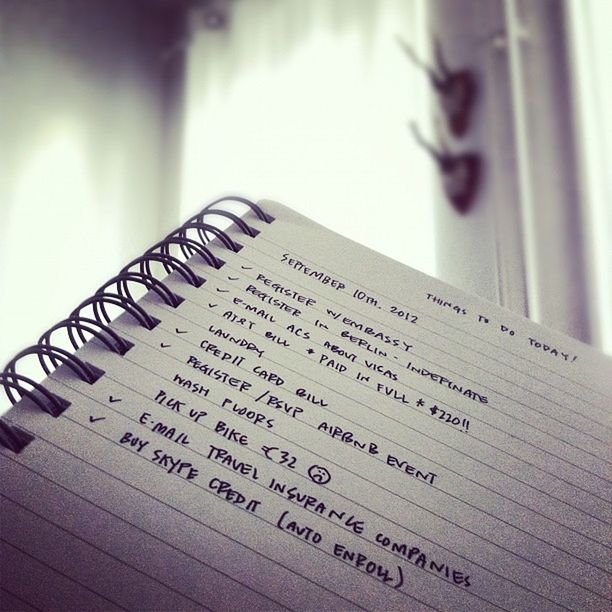 THINGS TO DO TODAY!
SEPTEMBER 10TH, 2012
✓ REGISTER W/EMBASSY
✓ REGISTER IN BERLIN - INDEFINATE
✓ E-MAIL ACS ABOUT VISAS
✓ AT&T BILL * PAID IN FULL * $220!!
LAUNDRY
✓ CREDIT CARD BILL
✓ REGISTER/RSVP AIRBNB EVENT
WASH FLOORS
PICK UP BIKE €32 ☹
✓ E-MAIL TRAVEL INSURANCE COMPANIES
✓ BUY SKYPE CREDIT (AUTO ENROLL)